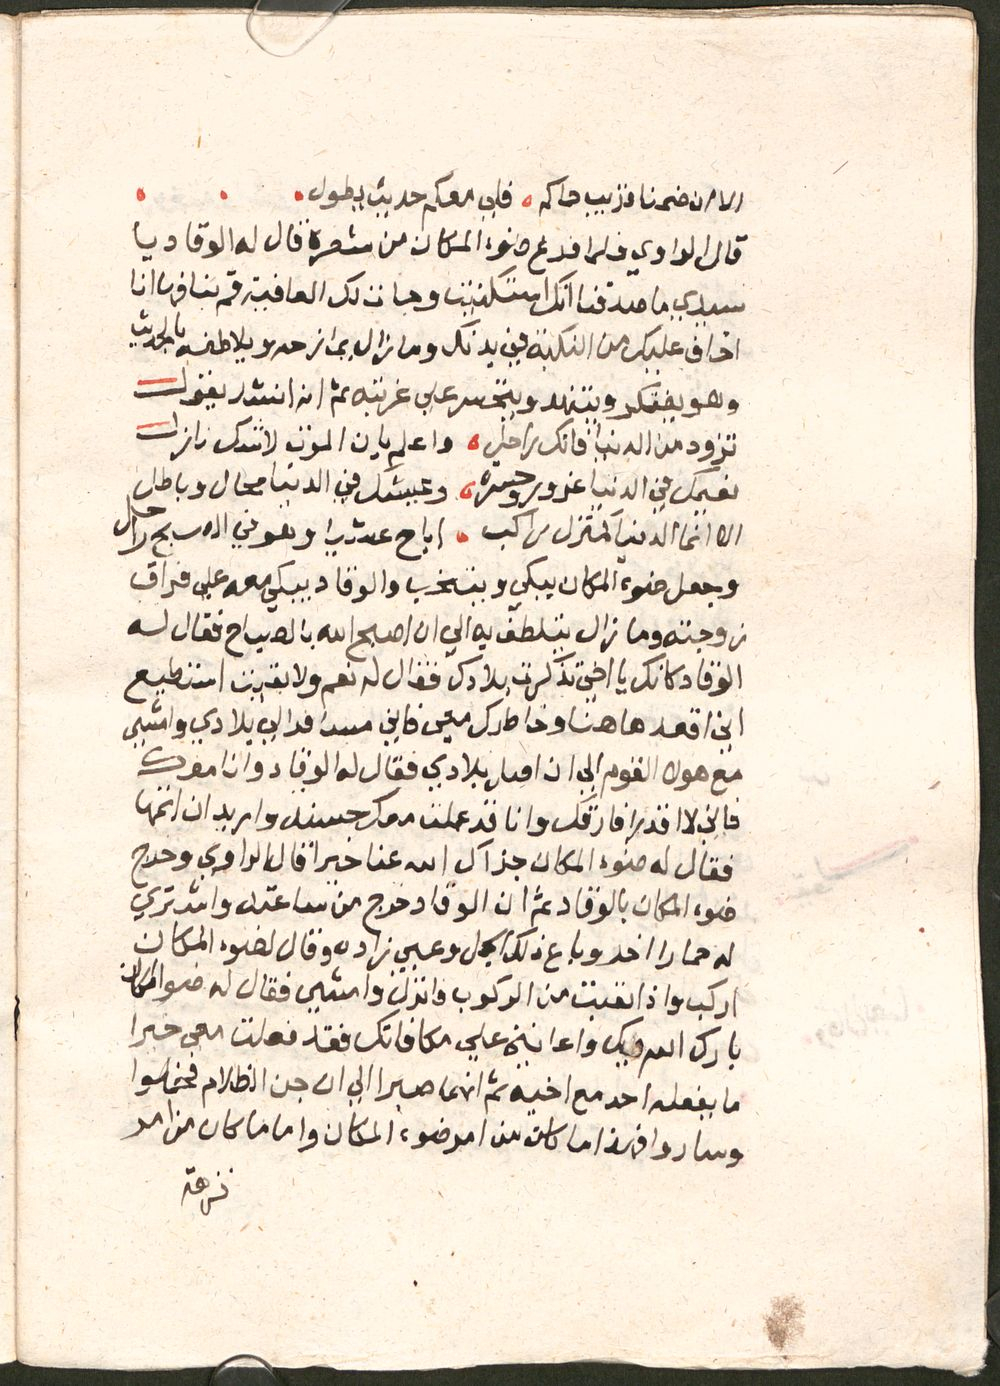 الا ان ضمنا قريب حاكم فلي معكم حديث يطول
قال الراوي فلما فرغ ضوء المكان من شعره قال له الوقاد يا
سيدي ما صدقنا انك استكنيت وجات لك العافية قم بنا فها انا
اخاف عليك من النكبة في بدنك وما زال يمازحه ويلاطفه بالحديث
وهو يفتكر ويتنهد ويتحسر علي غربته ثم انه انشد يقول
تزود من الدنيا فانك راحل واعلم بان الموت لا شك نازل
نعيمك في الدنيا غرور وحسرة وعيشك في الدنيا محال وباطل
الا انما الدنيا كمنزل راكب اناخ عشيا وهو في الصبح راحل
وجعل ضوء المكان يبكي وينتحب والوقاد يبكي معه علي فراق
زوجته وما زال يتلطف به الي ان اصبح الله بالصباح فقال له
الوقاد كانك يا اخي تذكرت بلادك فقال له نعم ولا بقيت استطيع
اني اقعد هاهنا وخاطرك معي فاني مسافر الي بلادي وامشي
مع هولا القوم الي ان اصل بلادي فقال له الوقاد وانا معك
فاني لا اقدر افارقك وانا قد عملت معك حسنه واريد ان اتمها
فقال له ضوء المكان جزاك الله عنا خيرا قال الراوي وخرج
ضوء المكان بالوقاد ثم ان الوقاد خرج من ساعته واشتري
له حمارا اخر وباع ذلك الجمل وعبي زاده وقال لضوء المكان
اركب واذا تعبت من الركوب فانزل وامشي فقال له ضوء المكان
بارك الله فيك واعانني علي مكافاتك فقد فعلت معي خيرا
ما يفعله احد مع اخيه ثم انهما صبرا الي ان جن الظلام فحملوا
وساروا فهذا ما كان من امر ضوء المكان واما ما كان من امر
نزهة